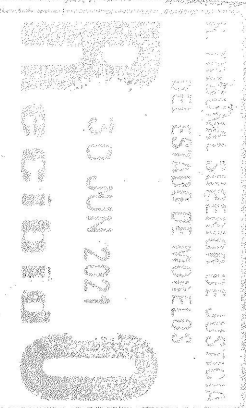 H. TRIBUNAL SUPERIOR DE JUSTICIA
DEL ESTADO DE MORELOS
30 JUN 2021
Recibido